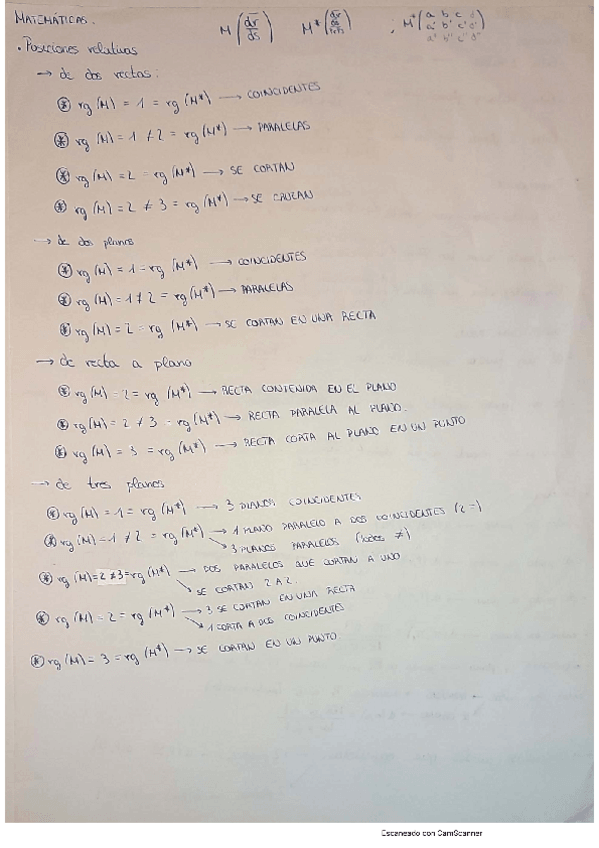 MATEMÁTICAS. M (dr ds) M* (dr ds PrPs) ; M* (a b c d
a' b' c' d'
a'' b'' c'' d'')
• Posiciones relativas
→ de dos rectas:
* rg (M) = 1 = rg (M*) → COINCIDENTES
* rg (M) = 1 ≠ 2 = rg (M*) → PARALELAS
* rg (M) = 2 = rg (M*) → SE CORTAN
* rg (M) = 2 ≠ 3 = rg (M*) → SE CRUZAN
→ de dos planos
* rg (M) = 1 = rg (M*) → COINCIDENTES
* rg (M) = 1 ≠ 2 = rg (M*) → PARALELAS
* rg (M) = 2 = rg (M*) → SE CORTAN EN UNA RECTA
→ de recta a plano
* rg (M) = 2 = rg (M*) → RECTA CONTENIDA EN EL PLANO
* rg (M) = 2 ≠ 3 = rg (M*) → RECTA PARALELA AL PLANO.
* rg (M) = 3 = rg (M*) → RECTA CORTA AL PLANO EN UN PUNTO
→ de tres planos
* rg (M) = 1 = rg (M*) → 3 PLANOS COINCIDENTES
* rg (M) = 1 ≠ 2 = rg (M*) → 1 PLANO PARALELO A DOS COINCIDENTES (2 =)
→ 3 PLANOS PARALELOS (todos ≠)
* rg (M) = 2 ≠ 3 = rg (M*) → DOS PARALELOS QUE CORTAN A UNO
→ SE CORTAN 2 A 2.
* rg (M) = 2 = rg (M*) → 3 SE CORTAN EN UNA RECTA
→ 1 CORTA A DOS COINCIDENTES
* rg (M) = 3 = rg (M*) → SE CORTAN EN UN PUNTO
Escaneado con CamScanner